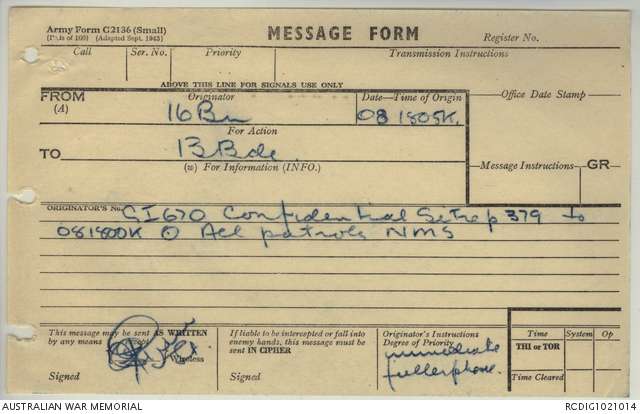 Army Form C2136 (Small)
(Pads of 100) (Adapted Sept. 1943)
MESSAGE FORM
Register No.
Call Ser. No. Priority Transmission Instructions
ABOVE THIS LINE FOR SIGNALS USE ONLY
FROM (A) Originator Date—Time of Origin Office Date Stamp
16 Bn 081805K
For Action
TO 13 Bde
(W) For Information (INFO.) Message Instructions GR
ORIGINATOR'S No. GI670 Confidential Sitrep 379 to
081800K O All patrols NMS
This message may be sent AS WRITTEN
by any means
Wireless
Signed
If liable to be intercepted or fall into
enemy hands, this message must be
sent IN CIPHER
Signed
Originator's Instructions
Degree of Priority
immediate
fullerphone.
Time System Op
THI or TOR
Time Cleared
AUSTRALIAN WAR MEMORIAL RCDIG1021014